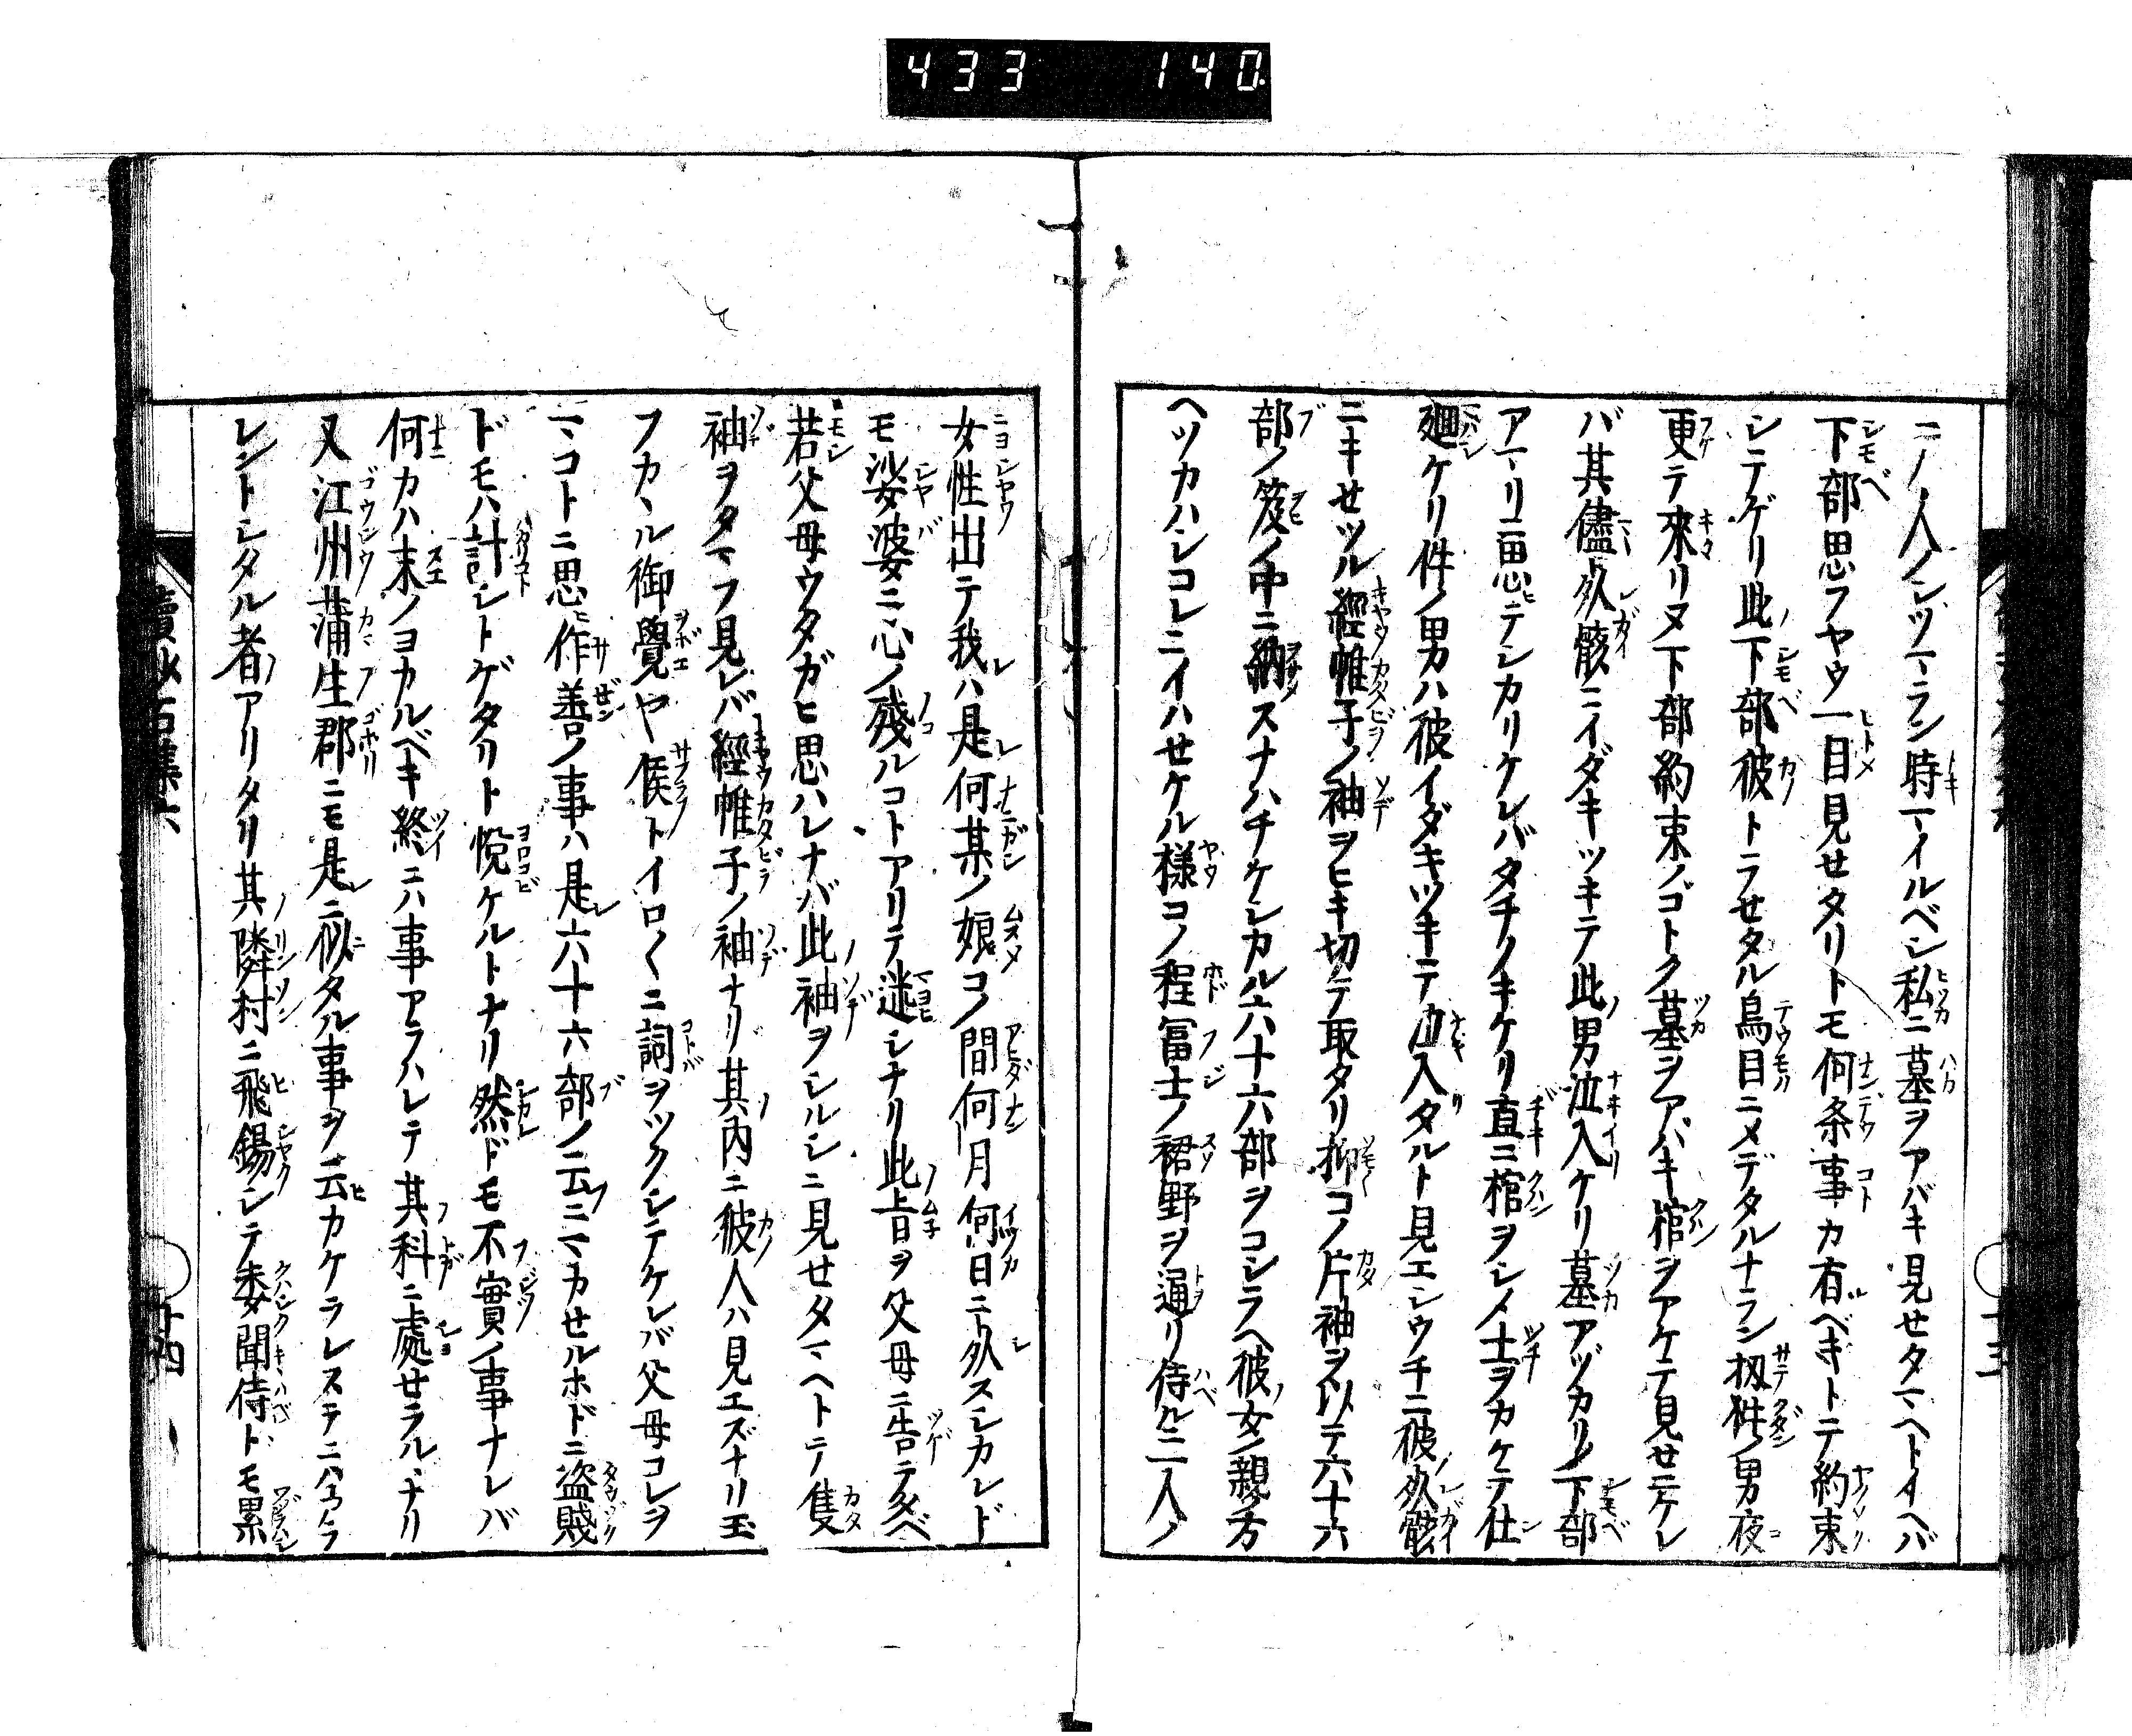 433 140
ニノ人ノシツマラン時マイルベシ私ニ墓ヲアバキ見セタマヘトイヘバ
下部思フヤウ一目見セタリトモ何条事カ有ベキトテ約束
シテゲリ此下部彼トラセタル鳥目ニメデタルナラン扨件ノ男夜
更テ來リヌ下部約束ノゴトク墓ヲアバキ棺ヲアケテ見セニケレ
バ其儘死骸ニイダキツキテ此男泣入ケリ墓アヅカリノ下部
アマリニ思ヒテシカリケレバタチノキケリ直ニ棺ヲシメ土ヲカケテ仕
廻ケリ件ノ男ハ彼イダキツキテ泣入タルト見エシウチニ彼死骸
ニキセツル經帷子ノ袖ヲヒキ切テ取タリ抑コノ片袖ヲ以テ六十六
部ノ笈ノ中ニ納スナハチケシカル六十六部ヲコシラヘ彼女ノ親ノ方
ヘツカハシコレニイハセケル様コノ程冨士ノ裾野ヲ通リ侍ルニ一人ノ
女性出テ我ハ是何某ノ娘コノ間何月何日ニ死スシカレド
モ娑婆ニ心ノ殘ルコトアリテ迷シナリ此旨ヲ父母ニ告テタベ
若父母ウタガヒ思ハレナバ此袖ヲシルシニ見セタマヘトテ隻
袖ヲタマフ見レバ經帷子ノ袖ナリ其内ニ彼人ハ見エズナリ玉
フカヽル御覺ヤ候トイロ〱ニ詞ヲツクシテケレバ父母コレヲ
マコトニ思ヒ作善ノ事ハ是六十六部ノ云ニマカセルホドニ盗賊
ドモハ計シトゲタリト悦ケルトナリ然ドモ不實ノ事ナレバ
何カハ末ノヨカルベキ終ニハ事アラハレテ其科ニ處セラルヽナリ
又江州蒲生郡ニモ是ニ似タル事ヲ云カケラレステニハカラ
レントシタル者アリタリ其隣村ニ飛錫シテ委聞侍ドモ累
續沙石集六
十四